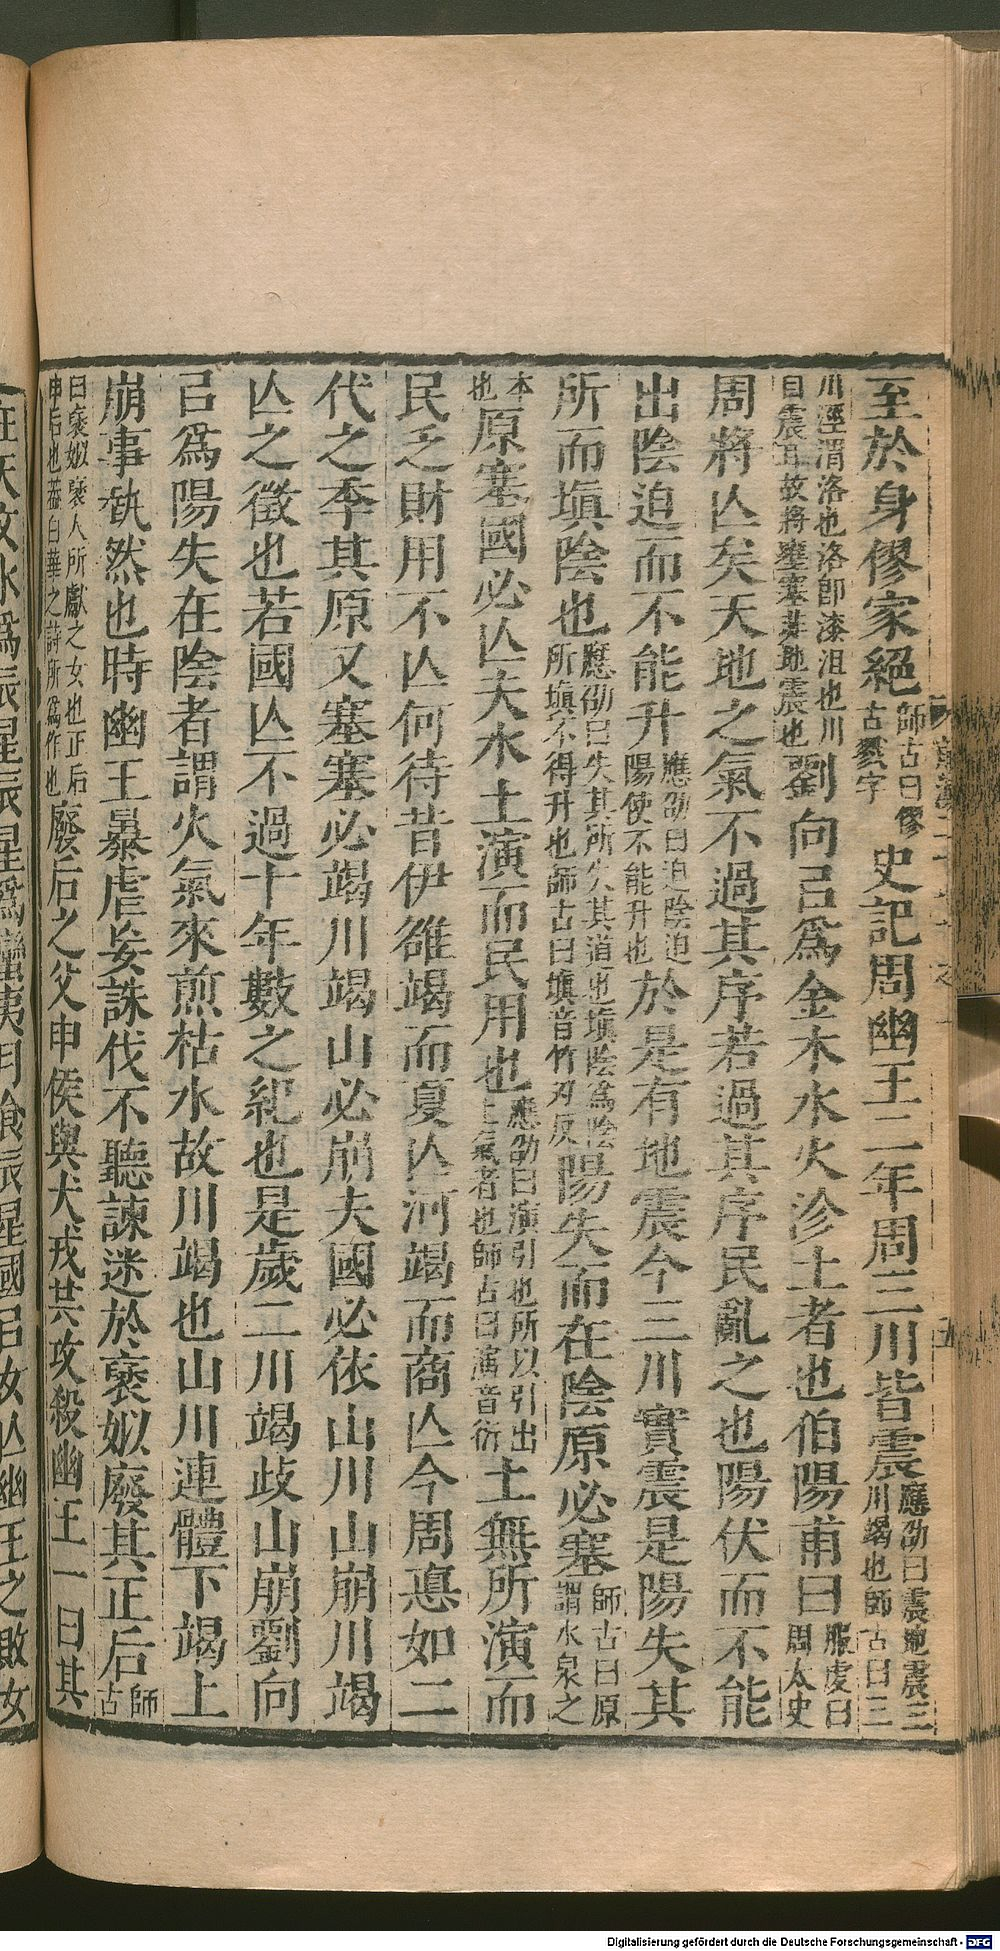 至於身僇家絕師古曰僇古戮字史記周幽王二年周三川皆震應劭曰震地震三川竭也師古曰三
川涇渭洛也洛卽漆沮也川自震耳故將壅塞非地震也劉向㠯爲金木水火沴土者也伯陽甫曰服虔曰周太史
周將亾矣天地之氣不過其序若過其序民亂之也陽伏而不能
出陰迫而不能升應劭曰迫陰迫陽使不能升也於是有地震今三川實震是陽失其
所而塡陰也應劭曰失其所失其道也塡陰爲陰所塡不得升也師古曰塡音竹刃反陽失而在陰原必塞師古曰原謂水泉之
本也原塞國必亾夫水土演而民用也應劭曰演引也所以引出土氣者也師古曰演音衍土無所演而
民乏財用不亾何待昔伊雒竭而夏亾河竭而商亾今周悳如二
代之季其原又塞塞必竭川竭山必崩夫國必依山川山崩川竭
亾之徵也若國亾不過十年數之紀也是歲二川竭歧山崩劉向
㠯爲陽失在陰者謂火氣來煎枯水故川竭也山川連體下竭上
崩事埶然也時幽王暴虐妄誅伐不聽諫迷於褒姒廢其正后師古
曰褒姒褒人所獻之女也正后申后也蓋白華之詩所爲作也廢后之父申侯與犬戎共攻殺幽王一曰其
在天文水爲辰星辰星爲蠻夷月食辰星國㠯女亾幽王之敗女
Digitalisierung gefördert durch die Deutsche Forschungsgemeinschaft - DFG